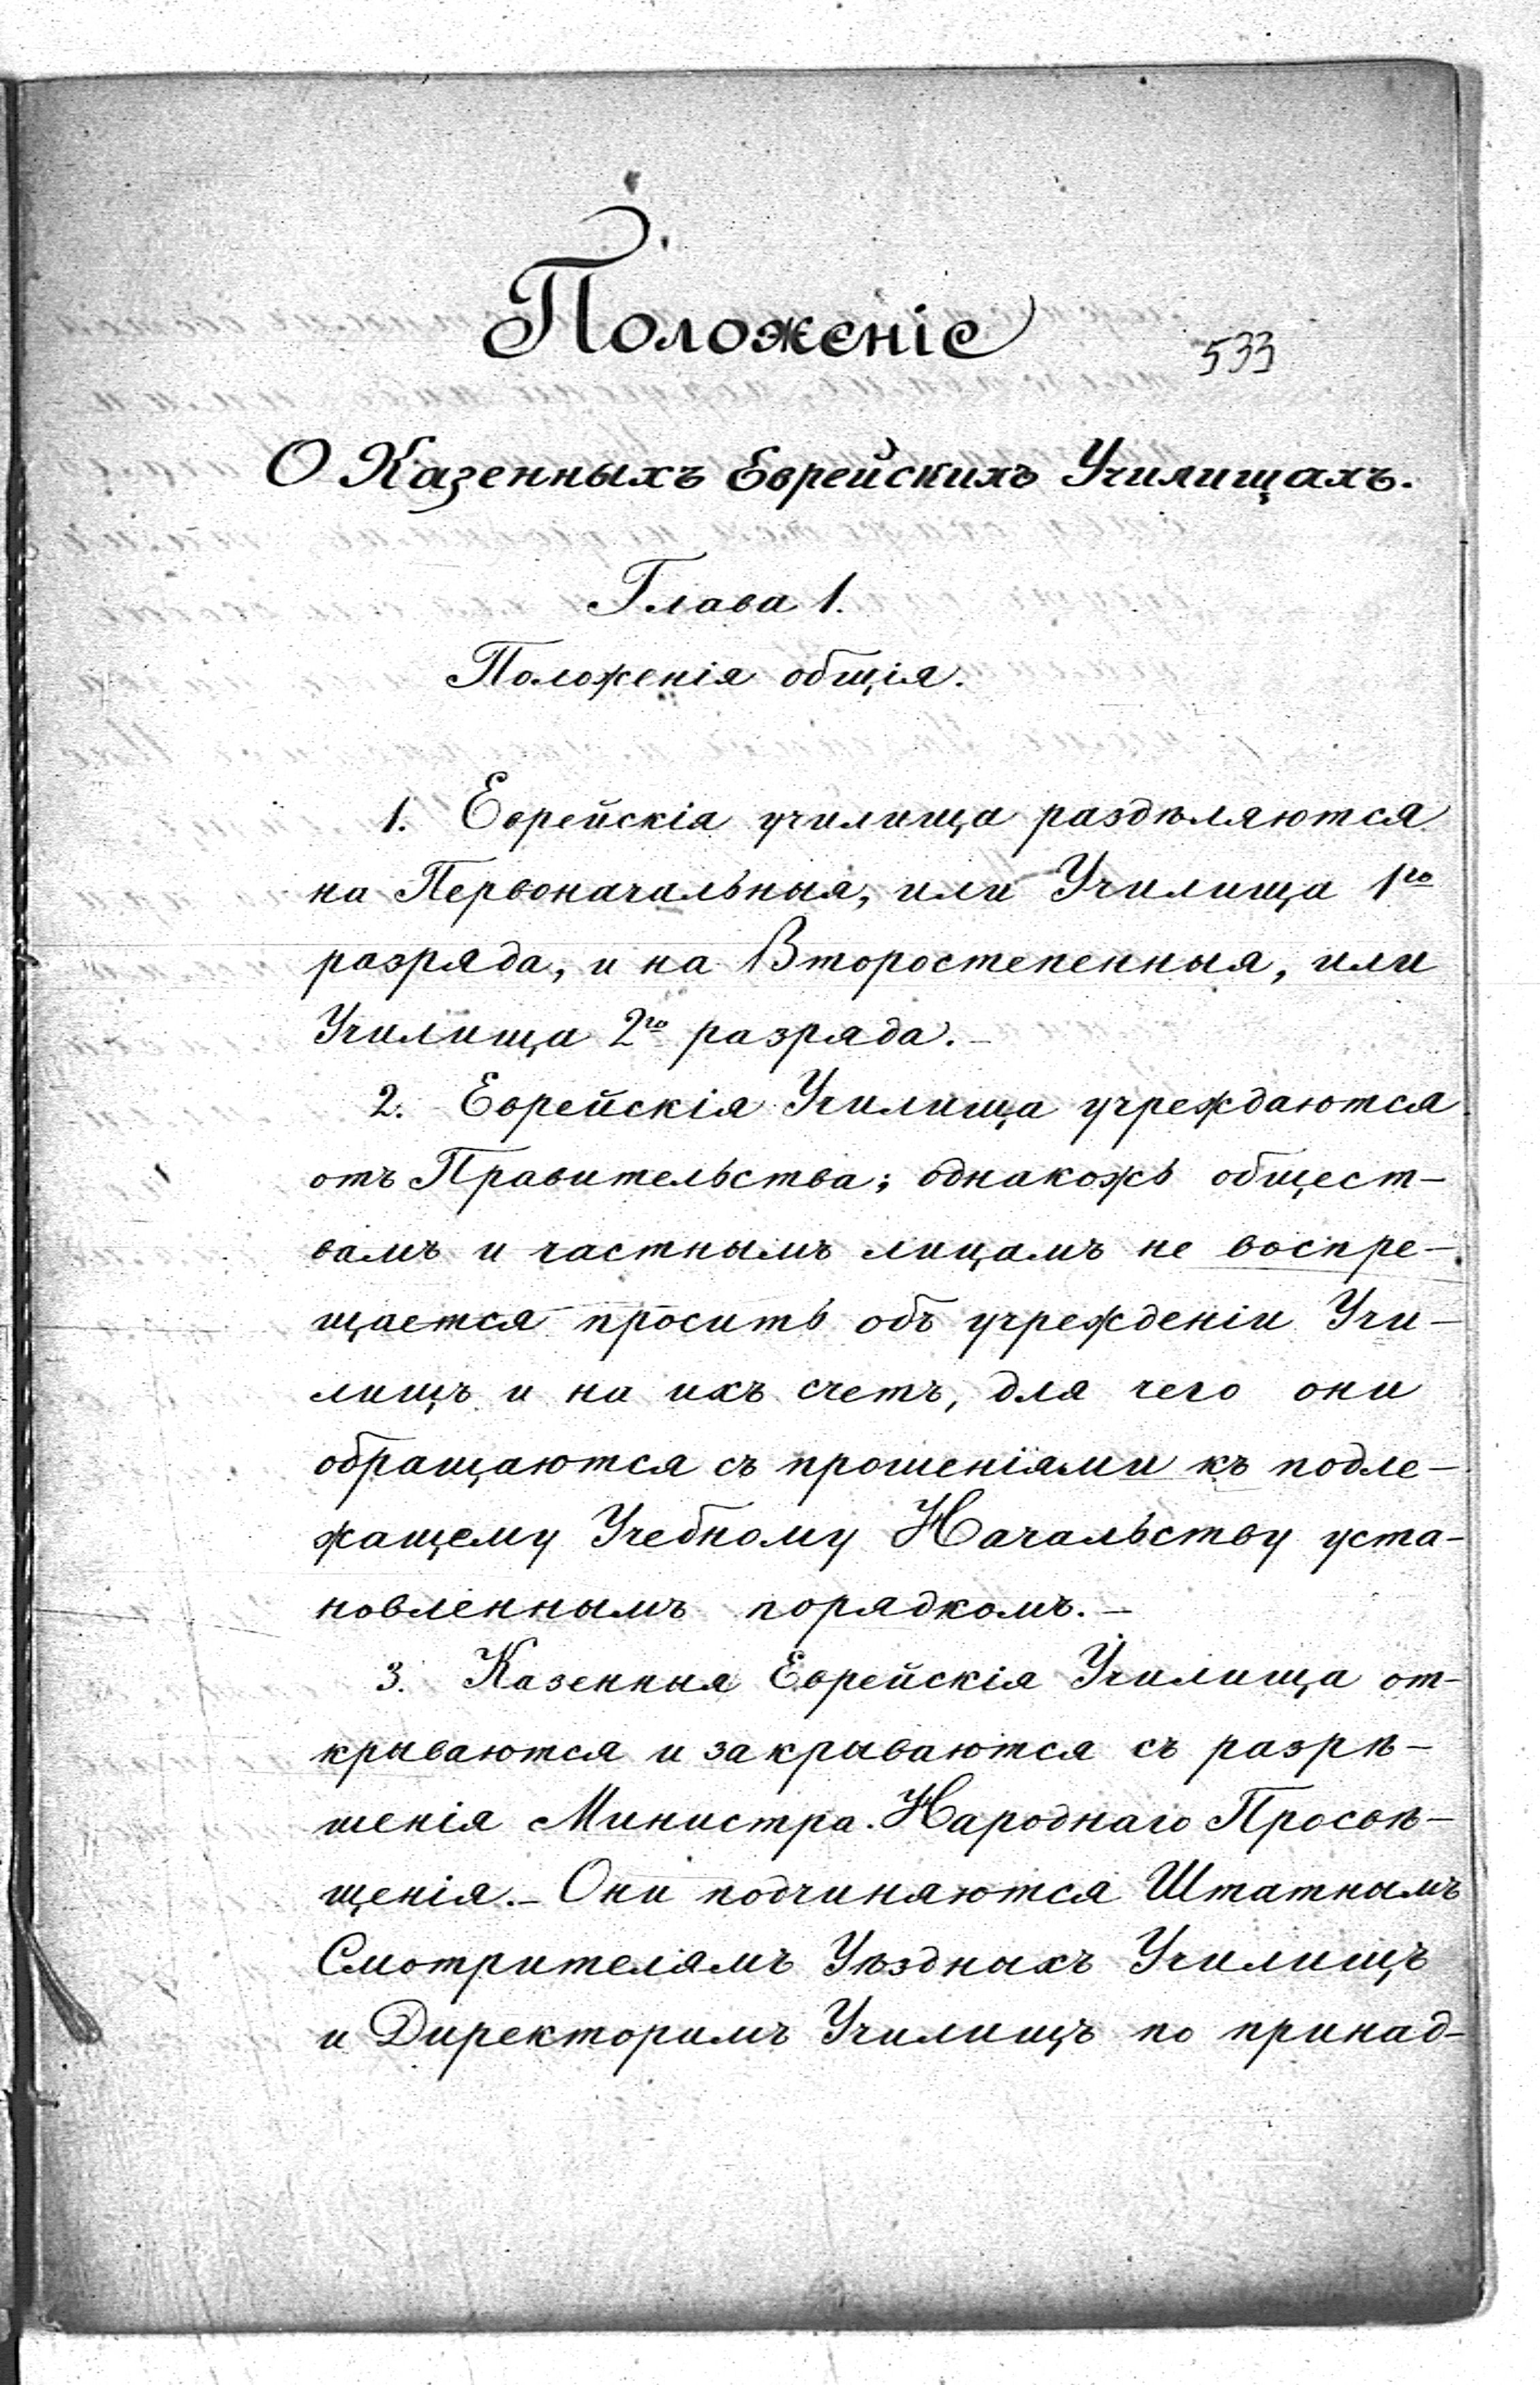 Положеніе
533
О Казенныхъ Еврейскихъ Училищахъ.
Глава 1.
Положенія общія.
1. Еврейскія училища раздѣляются
на Первоначальныя, или Училища 1го
разряда, и на Второстепенныя, или
Училища 2го разряда.–
2. Еврейскія Училища учреждаются
отъ Правительства; однакожъ общест–
вамъ и частнымъ лицамъ не воспре–
щается просить объ учрежденіи Учи–
лищъ и на ихъ счетъ, для чего они
обращаются съ прошеніями къ подле–
жащему Учебному Начальству уста–
новленнымъ порядкомъ.–
3. Казенныя Еврейскія Училища от–
крываются и закрываются съ разрѣ–
шенія Министра Народнаго Просвѣ–
щенія.– Они подчиняются Штатнымъ
Смотрителямъ Уѣздныхъ Училищъ
и Директорамъ Училищъ по принад–